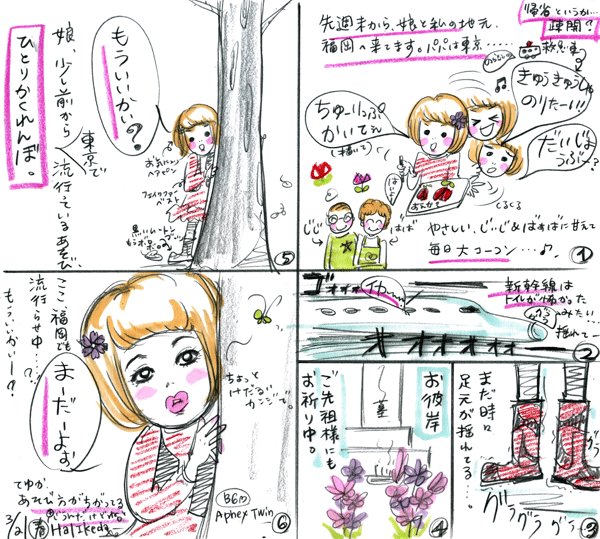 帰省というか…
疎開?
先週末から、娘と私の地元、
福岡へ来てます。パパは東京……
救急車
きゅうきゅうしゃ
のりたーい!!
ちゅーりっぷ
かいてぇ
(描いて)
だいじょ
うぶー?
はいよ
おえかき
くるくる
じじ
ばば
やさしい、じぃじ&ばぁばに甘えて
毎日大コーフン…♪。
①
新幹線は
トイレが怖かった
つめたい…
揺れて…
ゴォォォ
オオオォォォ
②
まだ時々
足元が揺れてる…。
グラグラグラグラ
③
お彼岸
ご先祖様にも
お祈り中。
④
もういいかい?
娘、少し前から
東京で
流行っているあそび、
ひとりかくれんぼ。
お気に入り
ヘアピン
フェイクファー
ベスト
⑤
ここ、福岡でも
流行らせ中…?
もういいかいー?
まーだーよぉ
ちょっと
けだるい
カンジで。
てゆか、
あそび方がちがってる
BGM
Aphex Twin
3/21
春
Hal Ikeda
⑥